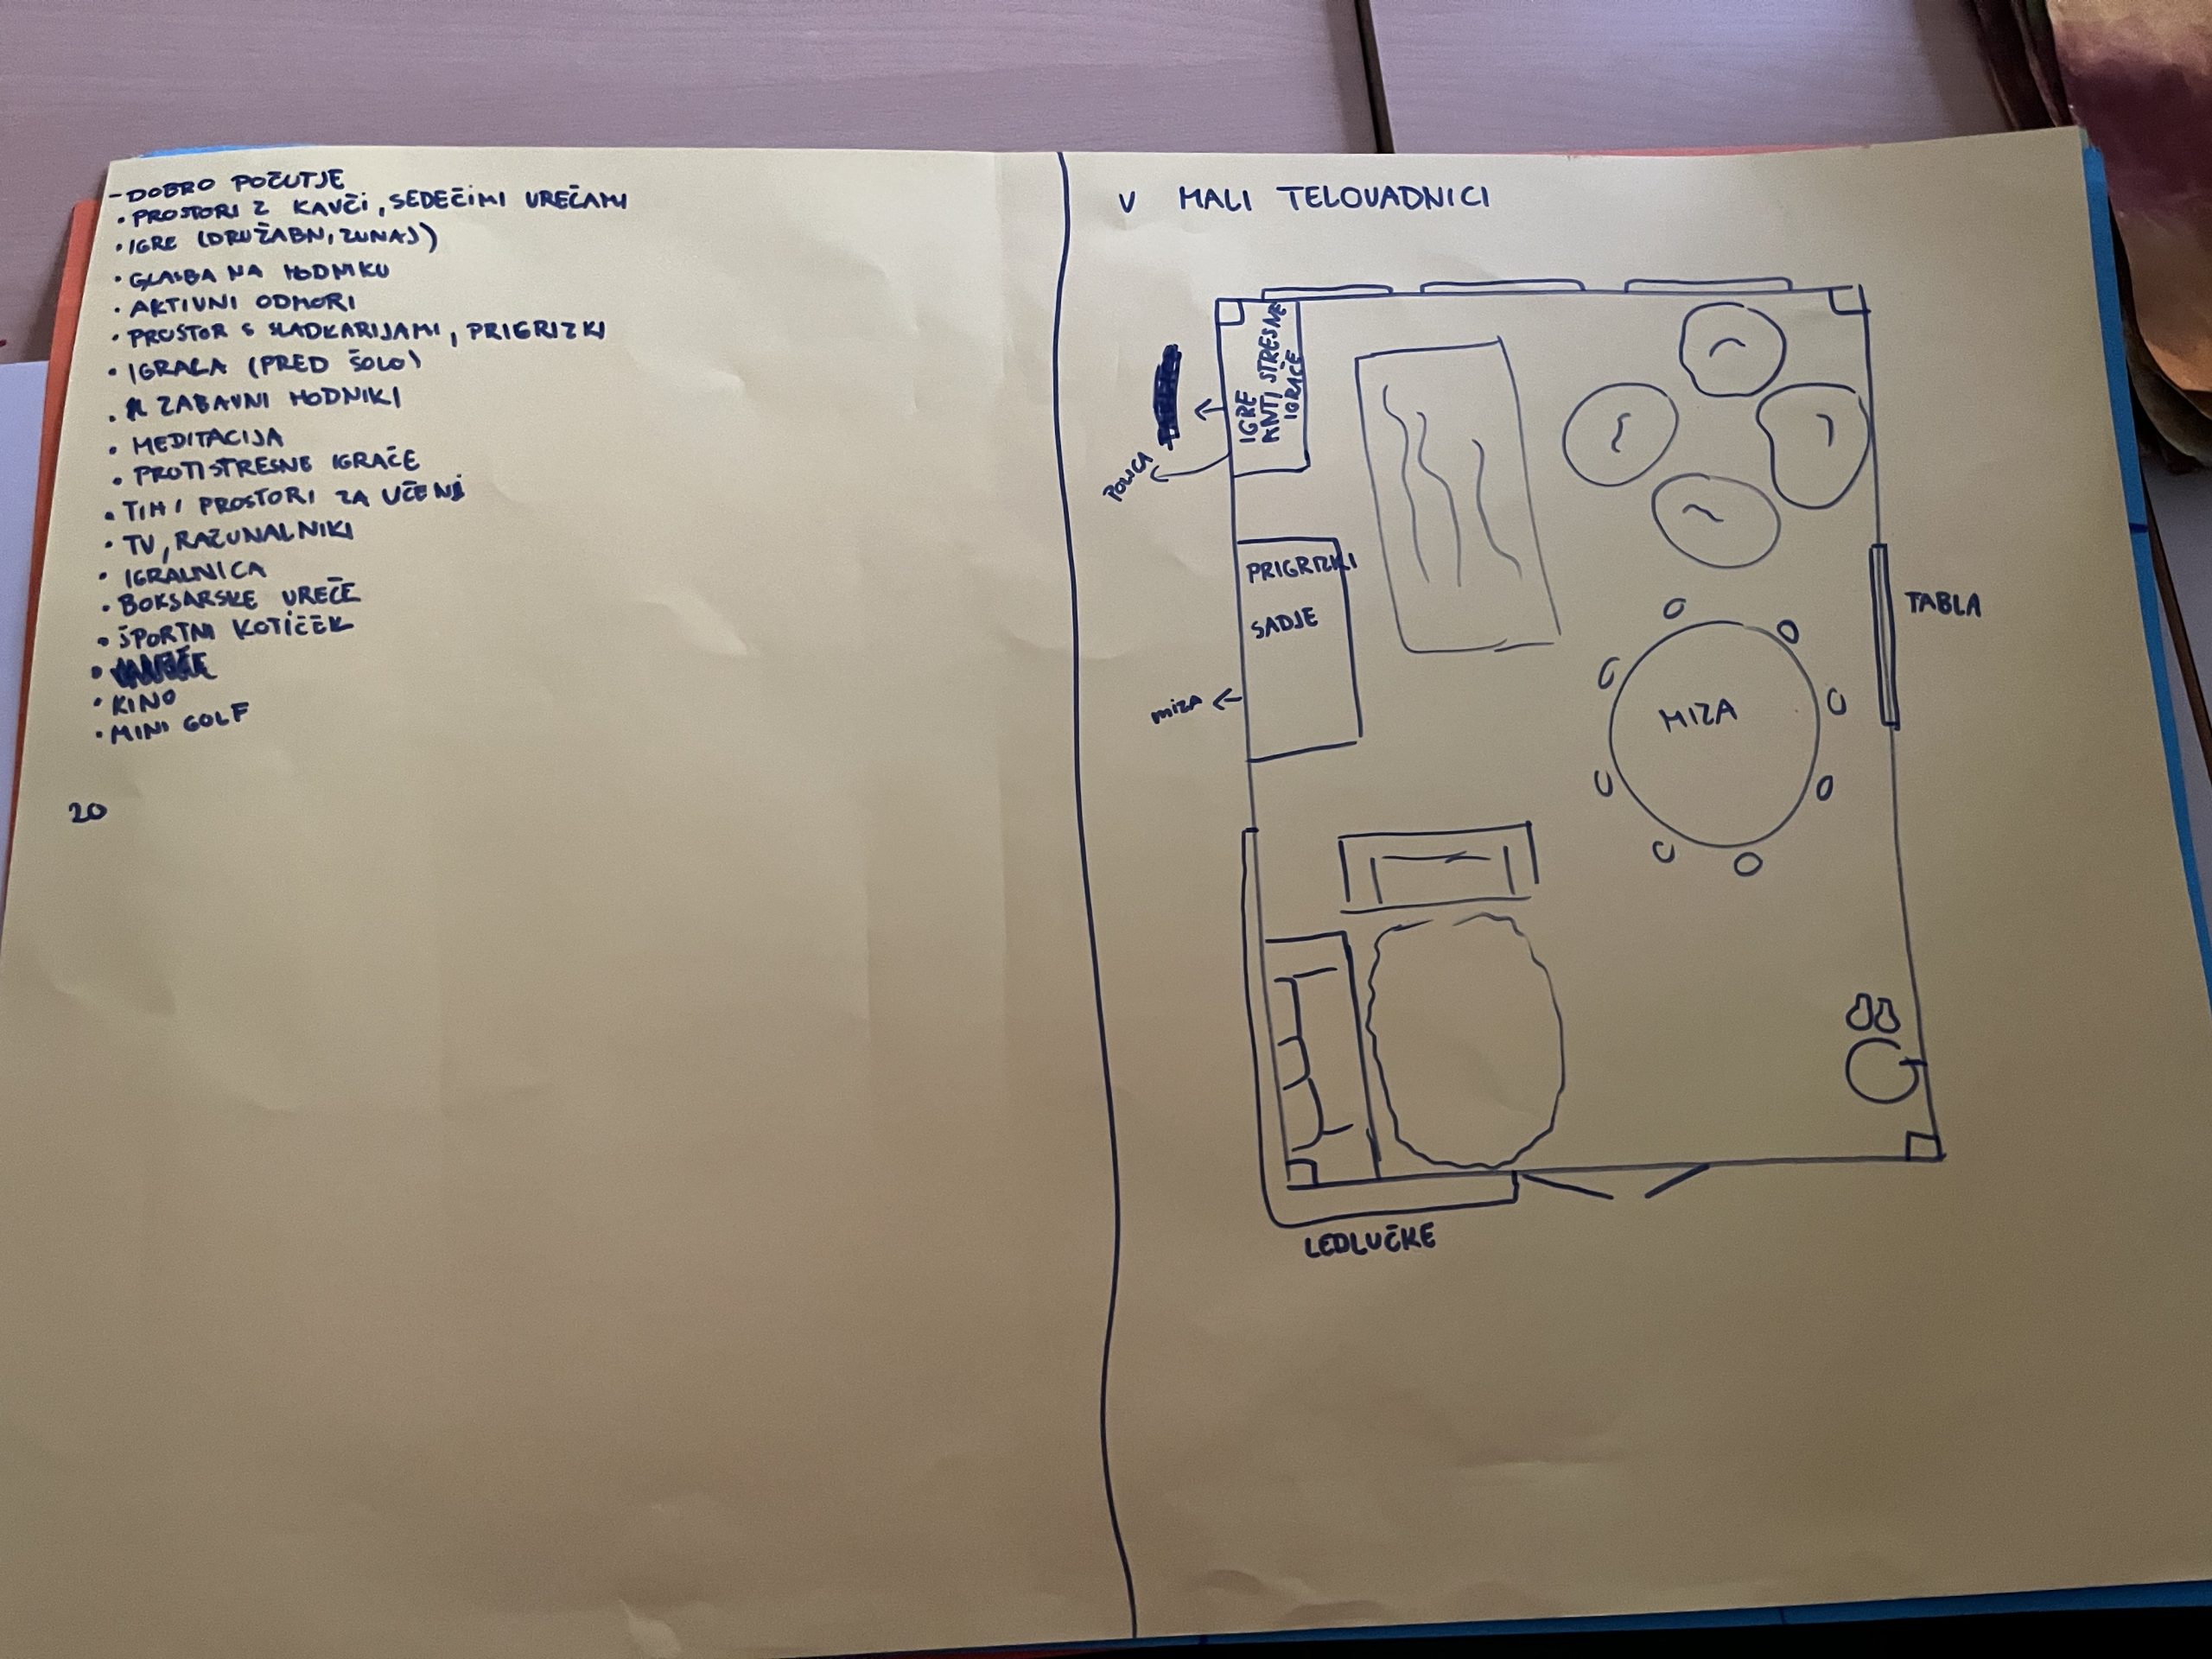 - DOBRO POČUTJE
• PROSTORI Z KAVČI, SEDEČIMI VREČAMI
• IGRE (DRUŽABN, ZUNAJ)
• GLASBA NA HODNIKU
• AKTIVNI ODMORI
• PROSTOR S SLADKARIJAMI, PRIGRIZKI
• IGRALA (PRED ŠOLO)
• ZABAVNI HODNIKI
• MEDITACIJA
• PROTISTRESNE IGRAČE
• TIHI PROSTORI ZA UČENJ
• TV, RAČUNALNIKI
• IGRALNICA
• BOKSARSKE VREČE
• ŠPORTNI KOTIČEK
• KINO
• MINI GOLF
20
V MALI TELOVADNICI
IGRE
ANTI STRESNE
IGRAČE
POLICA
PRIGRIZKI
SADJE
miza
TABLA
MIZA
LEDLUČKE